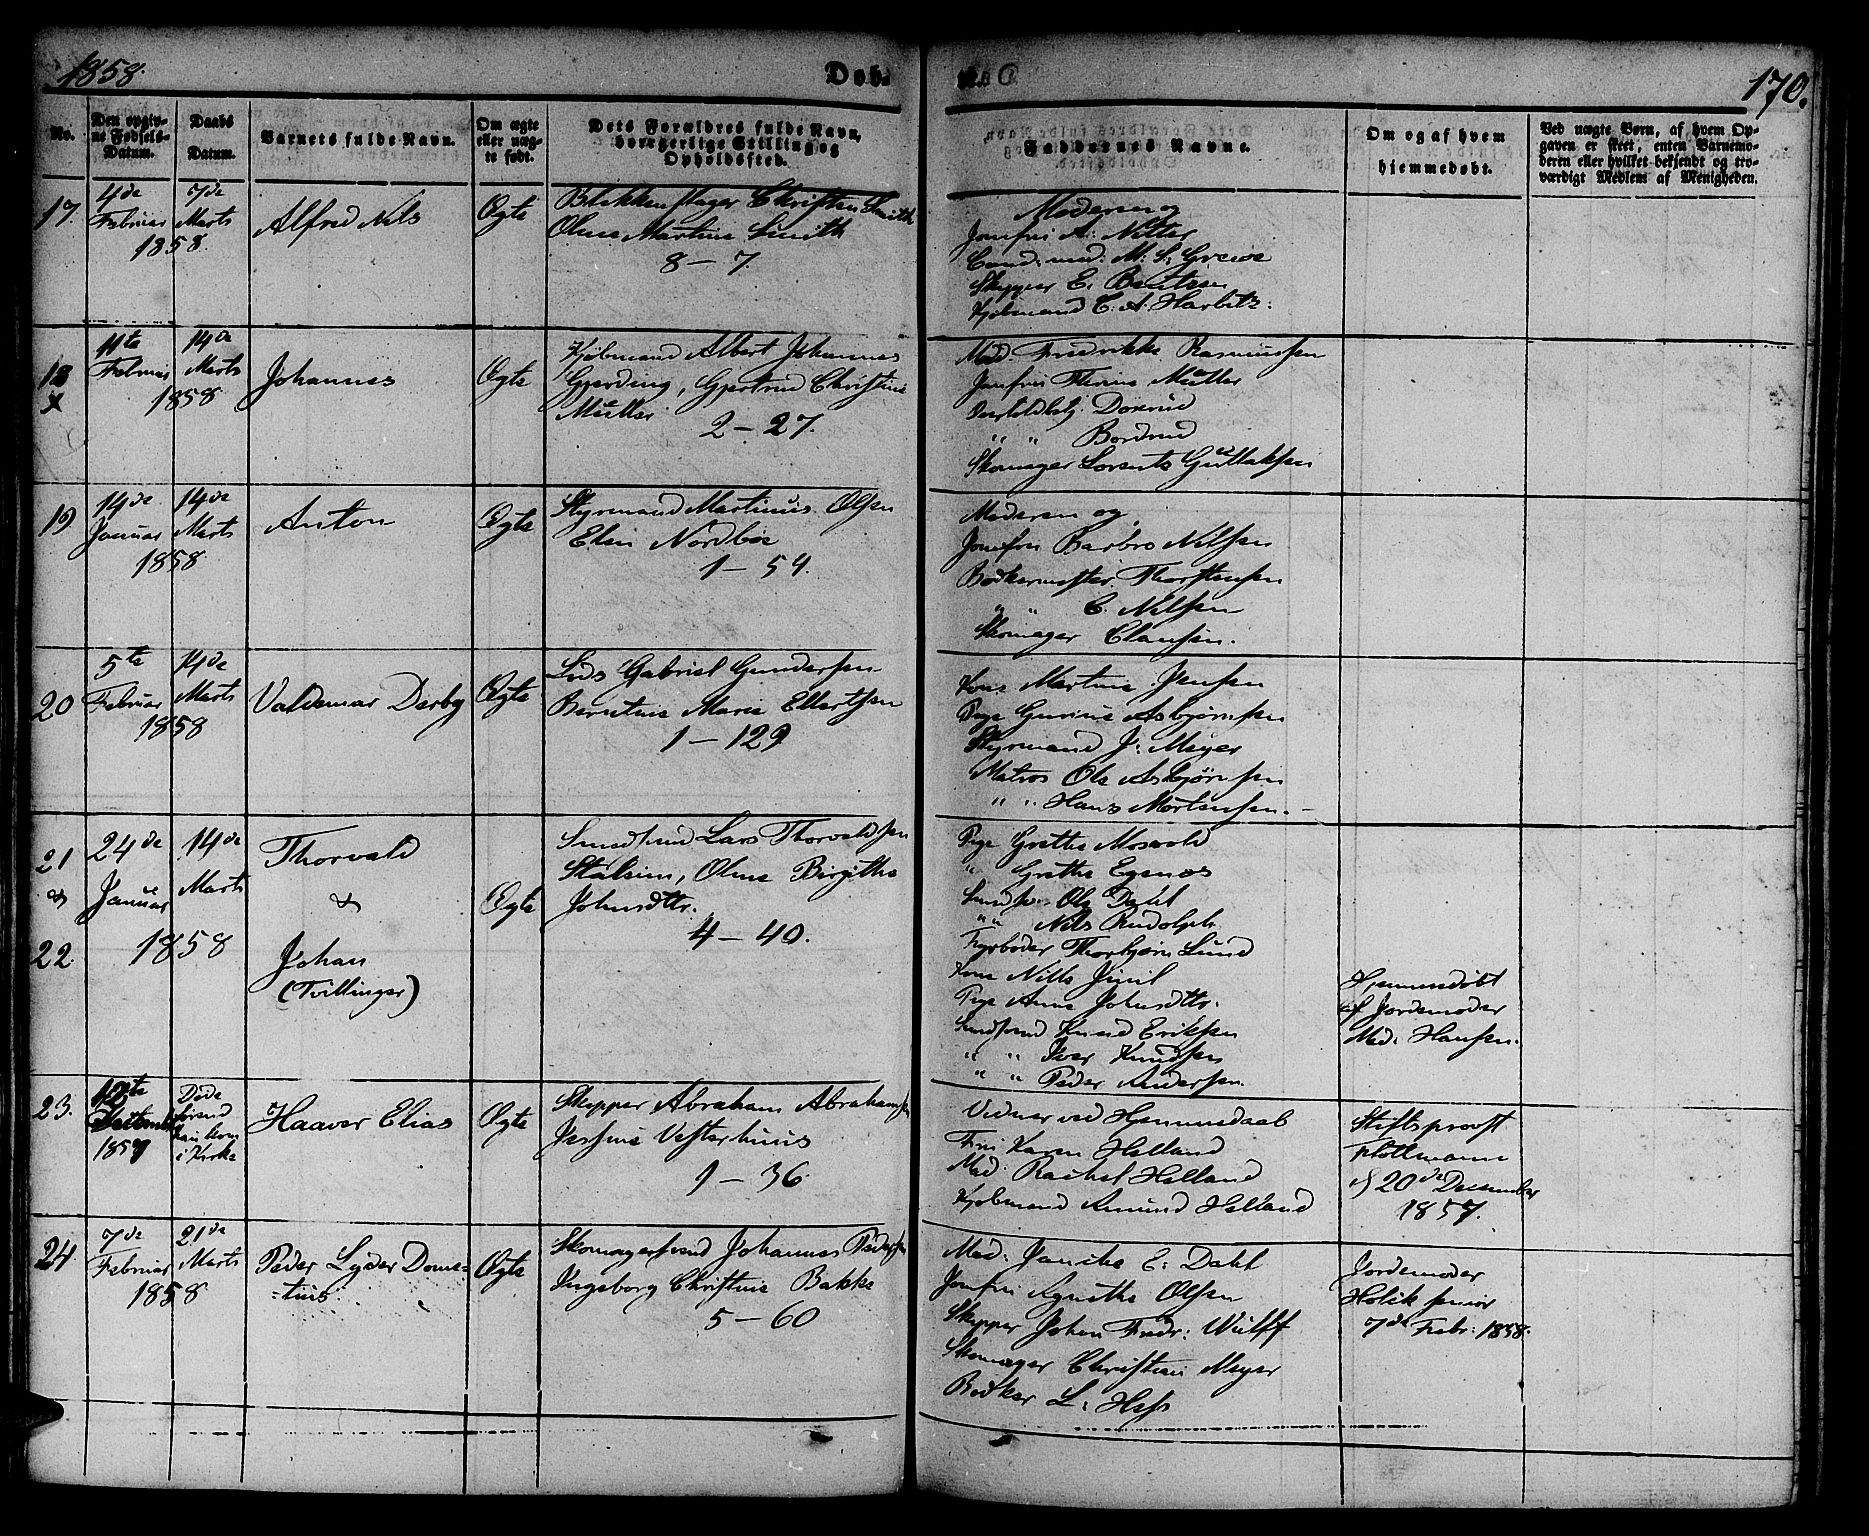 1858.
Døb.
170.
No.
Den opgiv-
ne Fødsels-
Datum.
Daabs
Datum.
Barnets fulde Navn.
Om ægte
eller uæg-
te født.
Dets Forældres fulde Navn,
borgerlige Stilling og
Opholdssted.
Faddernes Navne.
Om og af hvem
hjemmedøbt.
Ved uægte Børn, af hvem Op-
gaven er skeet, enten Barnemo-
deren eller hvilket bekjendt og tro-
værdigt Medlem af Menigheden.
17.
4de
Februar
7de
Marts
1858.
Alfred Nils
Ægte
Blikkenslager Christen Smith
Oline Martine Smith
8 – 7.
Moderen og
Jomfru A: Nitter
Cand: med: M: S: Greve
Skipper E. Bentsen
Kjøbmand C. A. Harbitz.
18
x
11te
Februar
14de
Marts
1858
Johannes
Ægte
Kjøbmand Albert Johannes
Gjerding, Gjertrud Christine
Müller
2 – 27.
Mad. Fredrikke Rasmussen
Jomfru Thrine Müller
Doxrud
" " Bordrud
Skomager Lorents Gullaksen
19
14de
Januar
14de
Marts
1858
Anton
Ægte
Styrmand Martinus Olsen
Elen Nordbøe
1 – 54.
Moderen og
Jomfru Barbro Nilsen
Bødkermester Thorstensen
" " C. Nilsen
Skomager Clausen.
20
5te
Februar
14de
Marts
1858
Valdemar Derby
Ægte
Lods Gabriel Gundersen
Berntine Marie Ellertsen
1 – 129
Kone Martine Jensen
Pige Gurine Asbjørnsen
Styrmand J: Meyer
Matros Ole Asbjørnsen
" " Hans Mortensen. –
21
&
22.
24de
Januar
14de
Marts
1858
Thorvald
&
Johan
(Tvillinger)
Ægte
Smedsvend Lars Thorvaldsen
Stålsim, Oline Birgithe
Johnsdtr.
4 – 40.
Pige Grethe Mosvold
" Grethe Egenæs
Smedsv. Ole Dahl
" " Nils Rudolph
Fyrbøder Thorbjørn Lund
Kone Nille Juul
Pige Anne Johnsdtr.
Smedsvend Knud Eriksen
" " Iver Knudsen
" " Peder Andersen.
Hjemmedøbt
af Jordemoder
Mad: Hansen.
23.
12te
1857
Døde
førend
han kom
i Kirke
Haaver Elias
Ægte
Skipper Abraham Abrahamsen
Jessine Vesterhuus
1 – 36
Vidner ved Hjemmedaab
Fru Karen Helland
Mad: Rachel Helland
Kjøbmand Amund Helland
Stiftsprovst
Flottmann
d 20de December
1857.
24.
7de
Februar
21de
Marts
1858
Peder Lyder Dome-
-tius
Ægte
Skomagersvend Johannes Pedersen
Ingeborg Christine Bakke
5 – 60
Mad: Janike E: Dahl
Jomfru Agnethe Olsen
Skipper Johan Fredr: Wulff
Skomager Christian Meyer
Bødker L: Hess
Jordemoder
Holik senior
7de Febr: 1858.